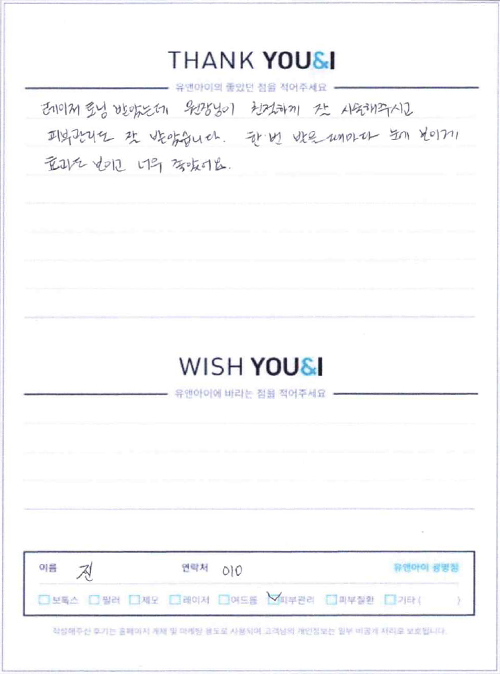 THANK YOU&I
유앤아이의 좋았던 점을 적어주세요
레이저 토닝 받았는데 원장님이 친절하게 잘 시술해주시고
피부관리도 잘 받았습니다. 한 번 받을 때마다 눈에 보이게
효과도 보이고 너무 좋았어요.
WISH YOU&I
유앤아이에 바라는 점을 적어주세요
이름 진 연락처 010 유앤아이 광명점
보톡스 필러 제모 레이저 여드름 피부관리 피부질환 기타 ( )
작성해주신 후기는 홈페이지 게재 및 마케팅 용도로 사용되며, 고객님의 개인정보는 일부 비공개 처리로 보호됩니다.